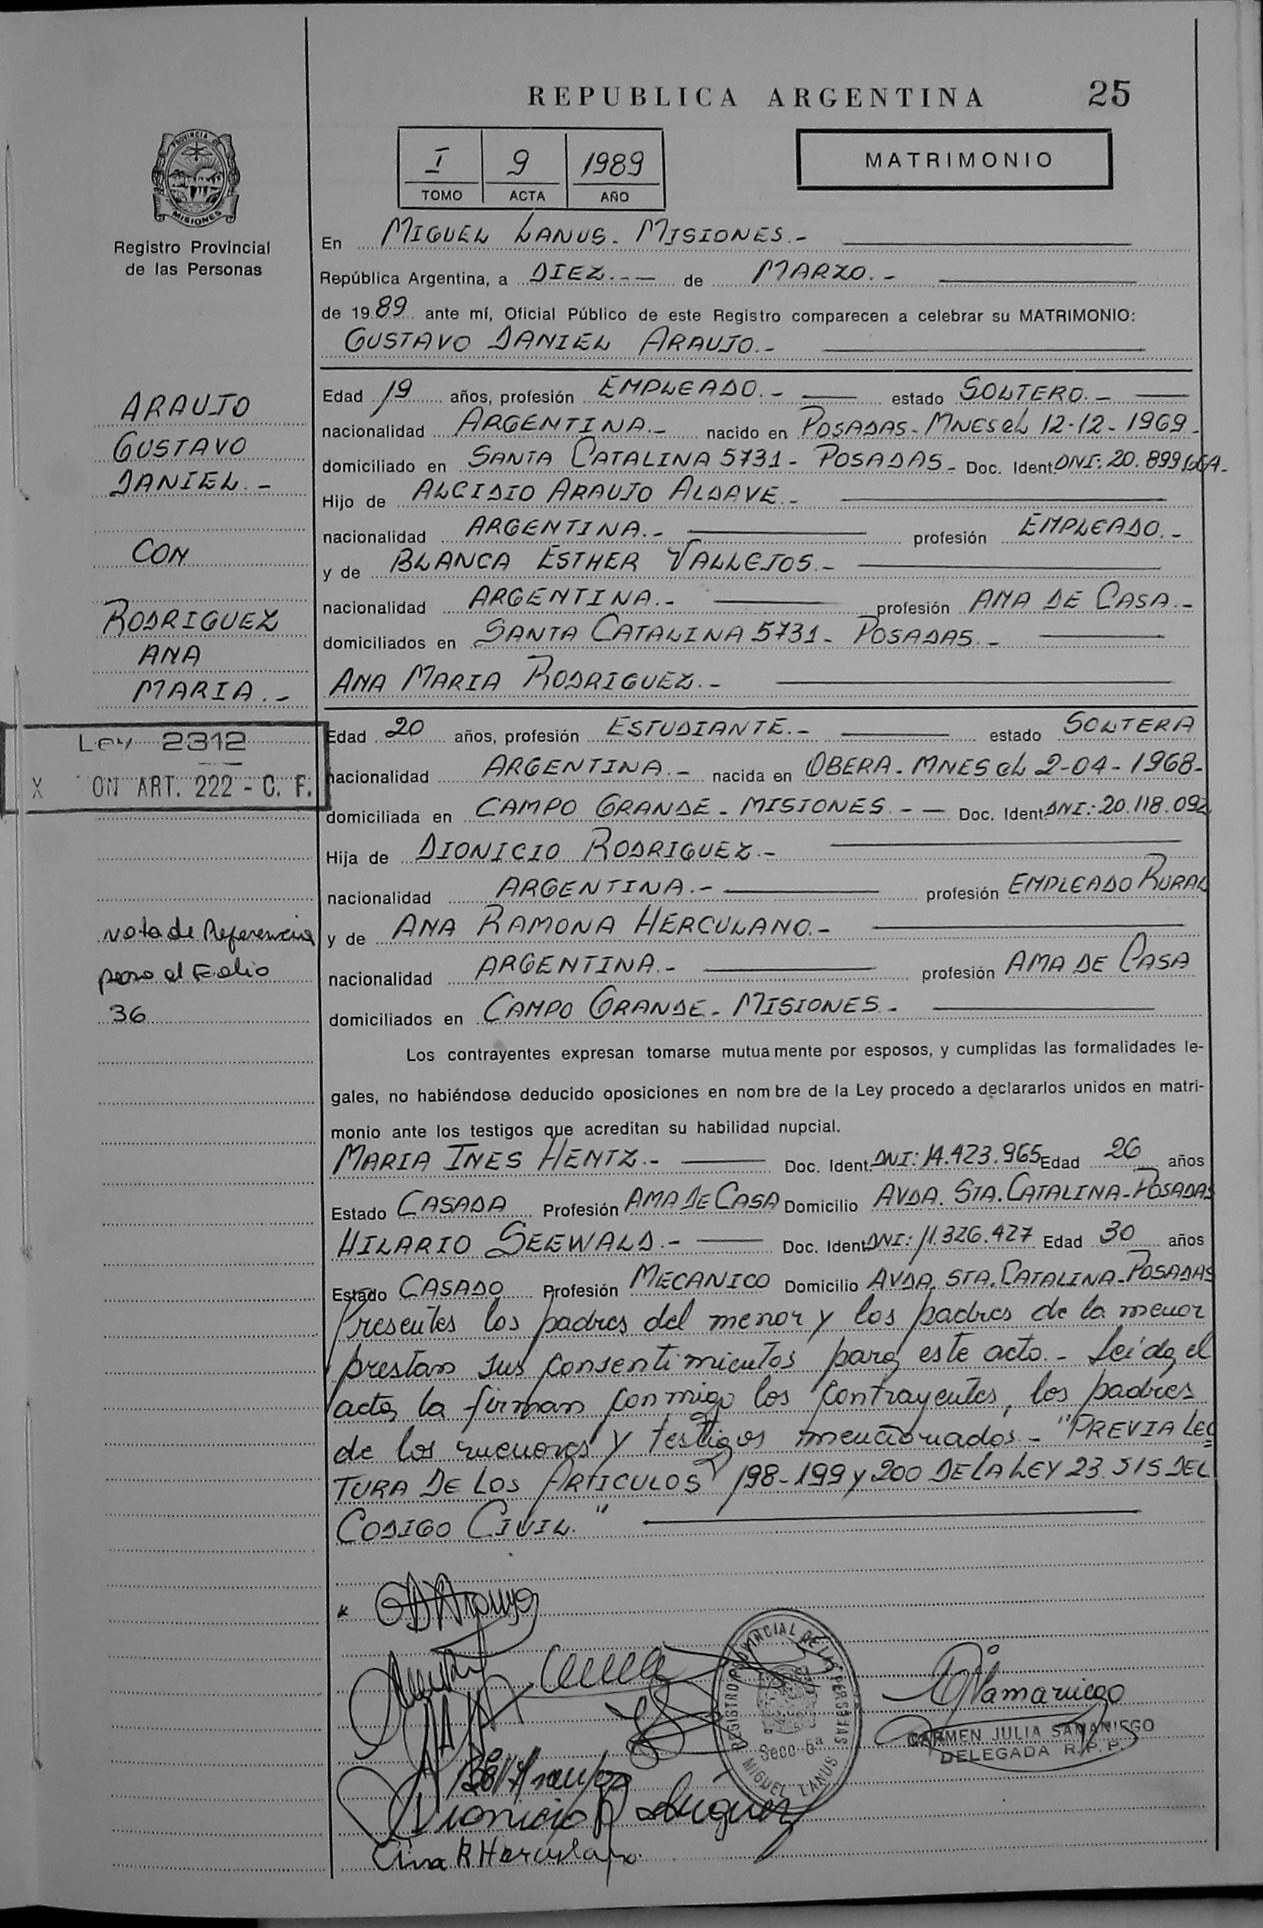 REPUBLICA ARGENTINA 25
PROVINCIA DE
MISIONES
Registro Provincial
de las Personas
I 9 1989
TOMO ACTA AÑO
MATRIMONIO
En MIGUEL LANUS - MISIONES.-
República Argentina, a DIEZ.-- de MARZO.-
de 1989 ante mí, Oficial Público de este Registro comparecen a celebrar su MATRIMONIO:
GUSTAVO DANIEL ARAUJO.-
ARAUJO
GUSTAVO
DANIEL.-
CON
RODRIGUEZ
ANA
MARIA.-
Edad 19 años, profesión EMPLEADO.- estado SOLTERO.-
nacionalidad ARGENTINA.- nacido en POSADAS - MNES el 12-12-1969-
domiciliado en SANTA CATALINA 5731 - POSADAS - Doc. Ident. DNI: 20.899
Hijo de ALCIDIO ARAUJO ALDAVE.-
nacionalidad ARGENTINA.- profesión EMPLEADO.-
y de BLANCA ESTHER VALLEJOS.-
nacionalidad ARGENTINA.- profesión AMA DE CASA.-
domiciliados en SANTA CATALINA 5731 - POSADAS.-
ANA MARIA RODRIGUEZ.-
Ley 2312
X ON ART. 222 - C. F.
Edad 20 años, profesión ESTUDIANTE.- estado SOLTERA
nacionalidad ARGENTINA.- nacida en OBERA - MNES el 2-04-1968-
domiciliada en CAMPO GRANDE - MISIONES.-- Doc. Ident. DNI: 20.118.092
Hija de DIONICIO RODRIGUEZ.-
nacionalidad ARGENTINA.- profesión EMPLEADO RURAL
y de ANA RAMONA HERCULANO.-
nacionalidad ARGENTINA.- profesión AMA DE CASA
domiciliados en CAMPO GRANDE - MISIONES.-
Nota de Referencia
paso al Folio
36
Los contrayentes expresan tomarse mutuamente por esposos, y cumplidas las formalidades le-
gales, no habiéndose deducido oposiciones en nombre de la Ley procedo a declararlos unidos en matri-
monio ante los testigos que acreditan su habilidad nupcial.
MARIA INES HENTZ.- Doc. Ident. DNI: 14.423.965 Edad 26 años
Estado CASADA Profesión AMA DE CASA Domicilio AVDA. STA. CATALINA - POSADAS
HILARIO SEEWALD.- Doc. Ident. DNI: 11.326.427 Edad 30 años
Estado CASADO Profesión MECANICO Domicilio AVDA. STA. CATALINA - POSADAS
Presentes los padres del menor y los padres de la menor
prestan sus consentimientos para este acto.- Leida el
acta, la firman conmigo los contrayentes, los padres
de los menores y testigos mencionados.- "PREVIA LEC
TURA DE LOS ARTICULOS 198-199 y 200 DE LA LEY 23.515 DEL
CODIGO CIVIL."
REGISTRO PROVINCIAL DE LAS PERSONAS
Secc 6ª
MIGUEL LANUS
CARMEN JULIA SAMANIEGO
DELEGADA R.P.P.
Dionicio Rodriguez
Ana R Herculano